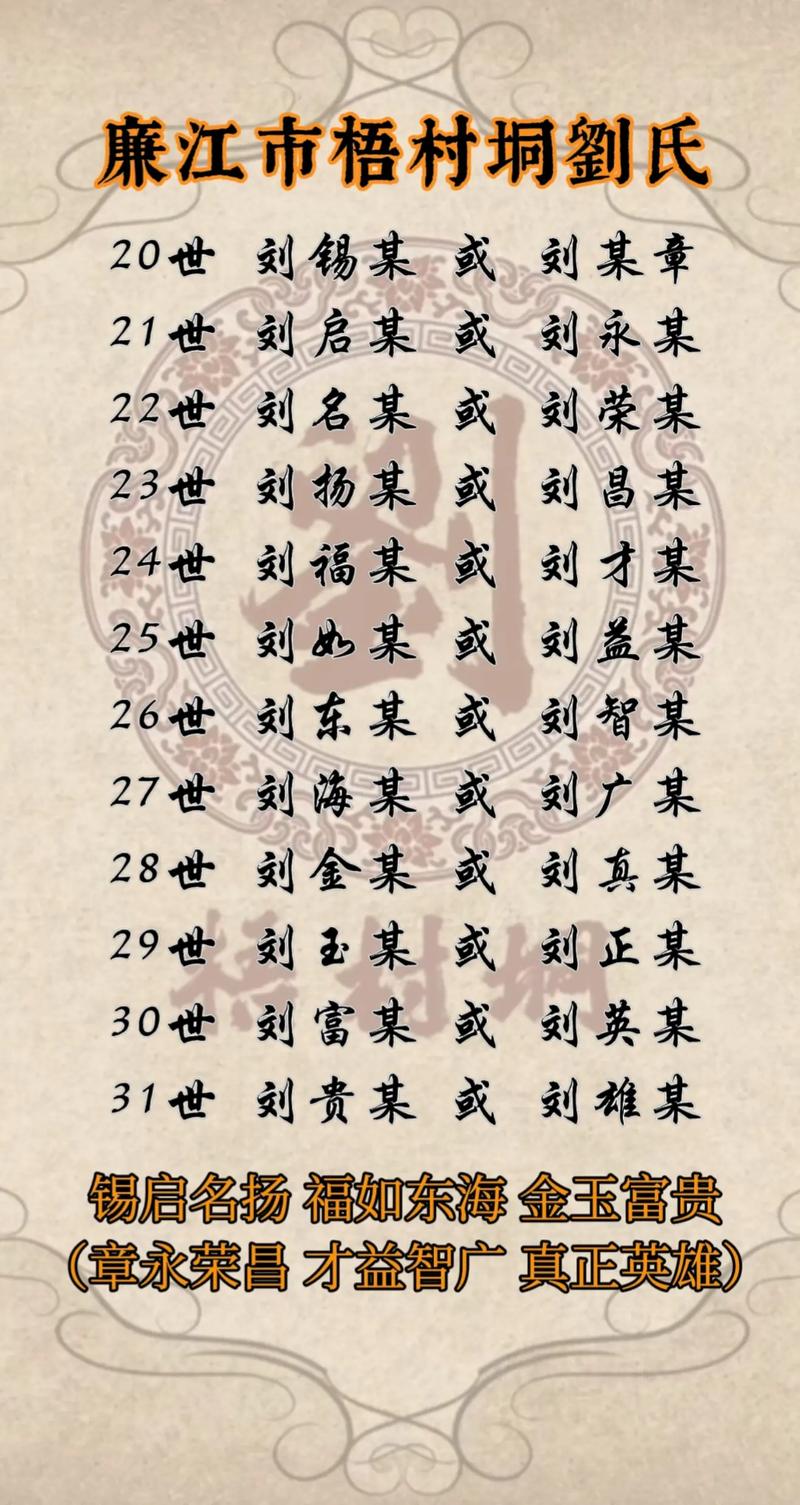 廉江市梧村垌劉氏
20世 刘锡某 或 刘某章
21世 刘启某 或 刘永某
22世 刘名某 或 刘荣某
23世 刘扬某 或 刘昌某
24世 刘福某 或 刘才某
25世 刘如某 或 刘益某
26世 刘东某 或 刘智某
27世 刘海某 或 刘广某
28世 刘金某 或 刘真某
29世 刘玉某 或 刘正某
30世 刘富某 或 刘英某
31世 刘贵某 或 刘雄某
锡启名扬 福如东海 金玉富贵
（章永荣昌 才益智广 真正英雄）
劉
梧村垌